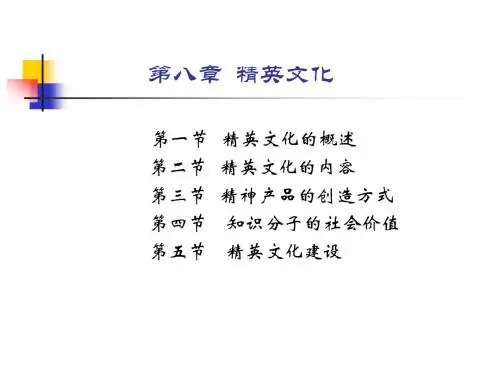 第八章 精英文化
第一节 精英文化的概述
第二节 精英文化的内容
第三节 精神产品的创造方式
第四节 知识分子的社会价值
第五节 精英文化建设